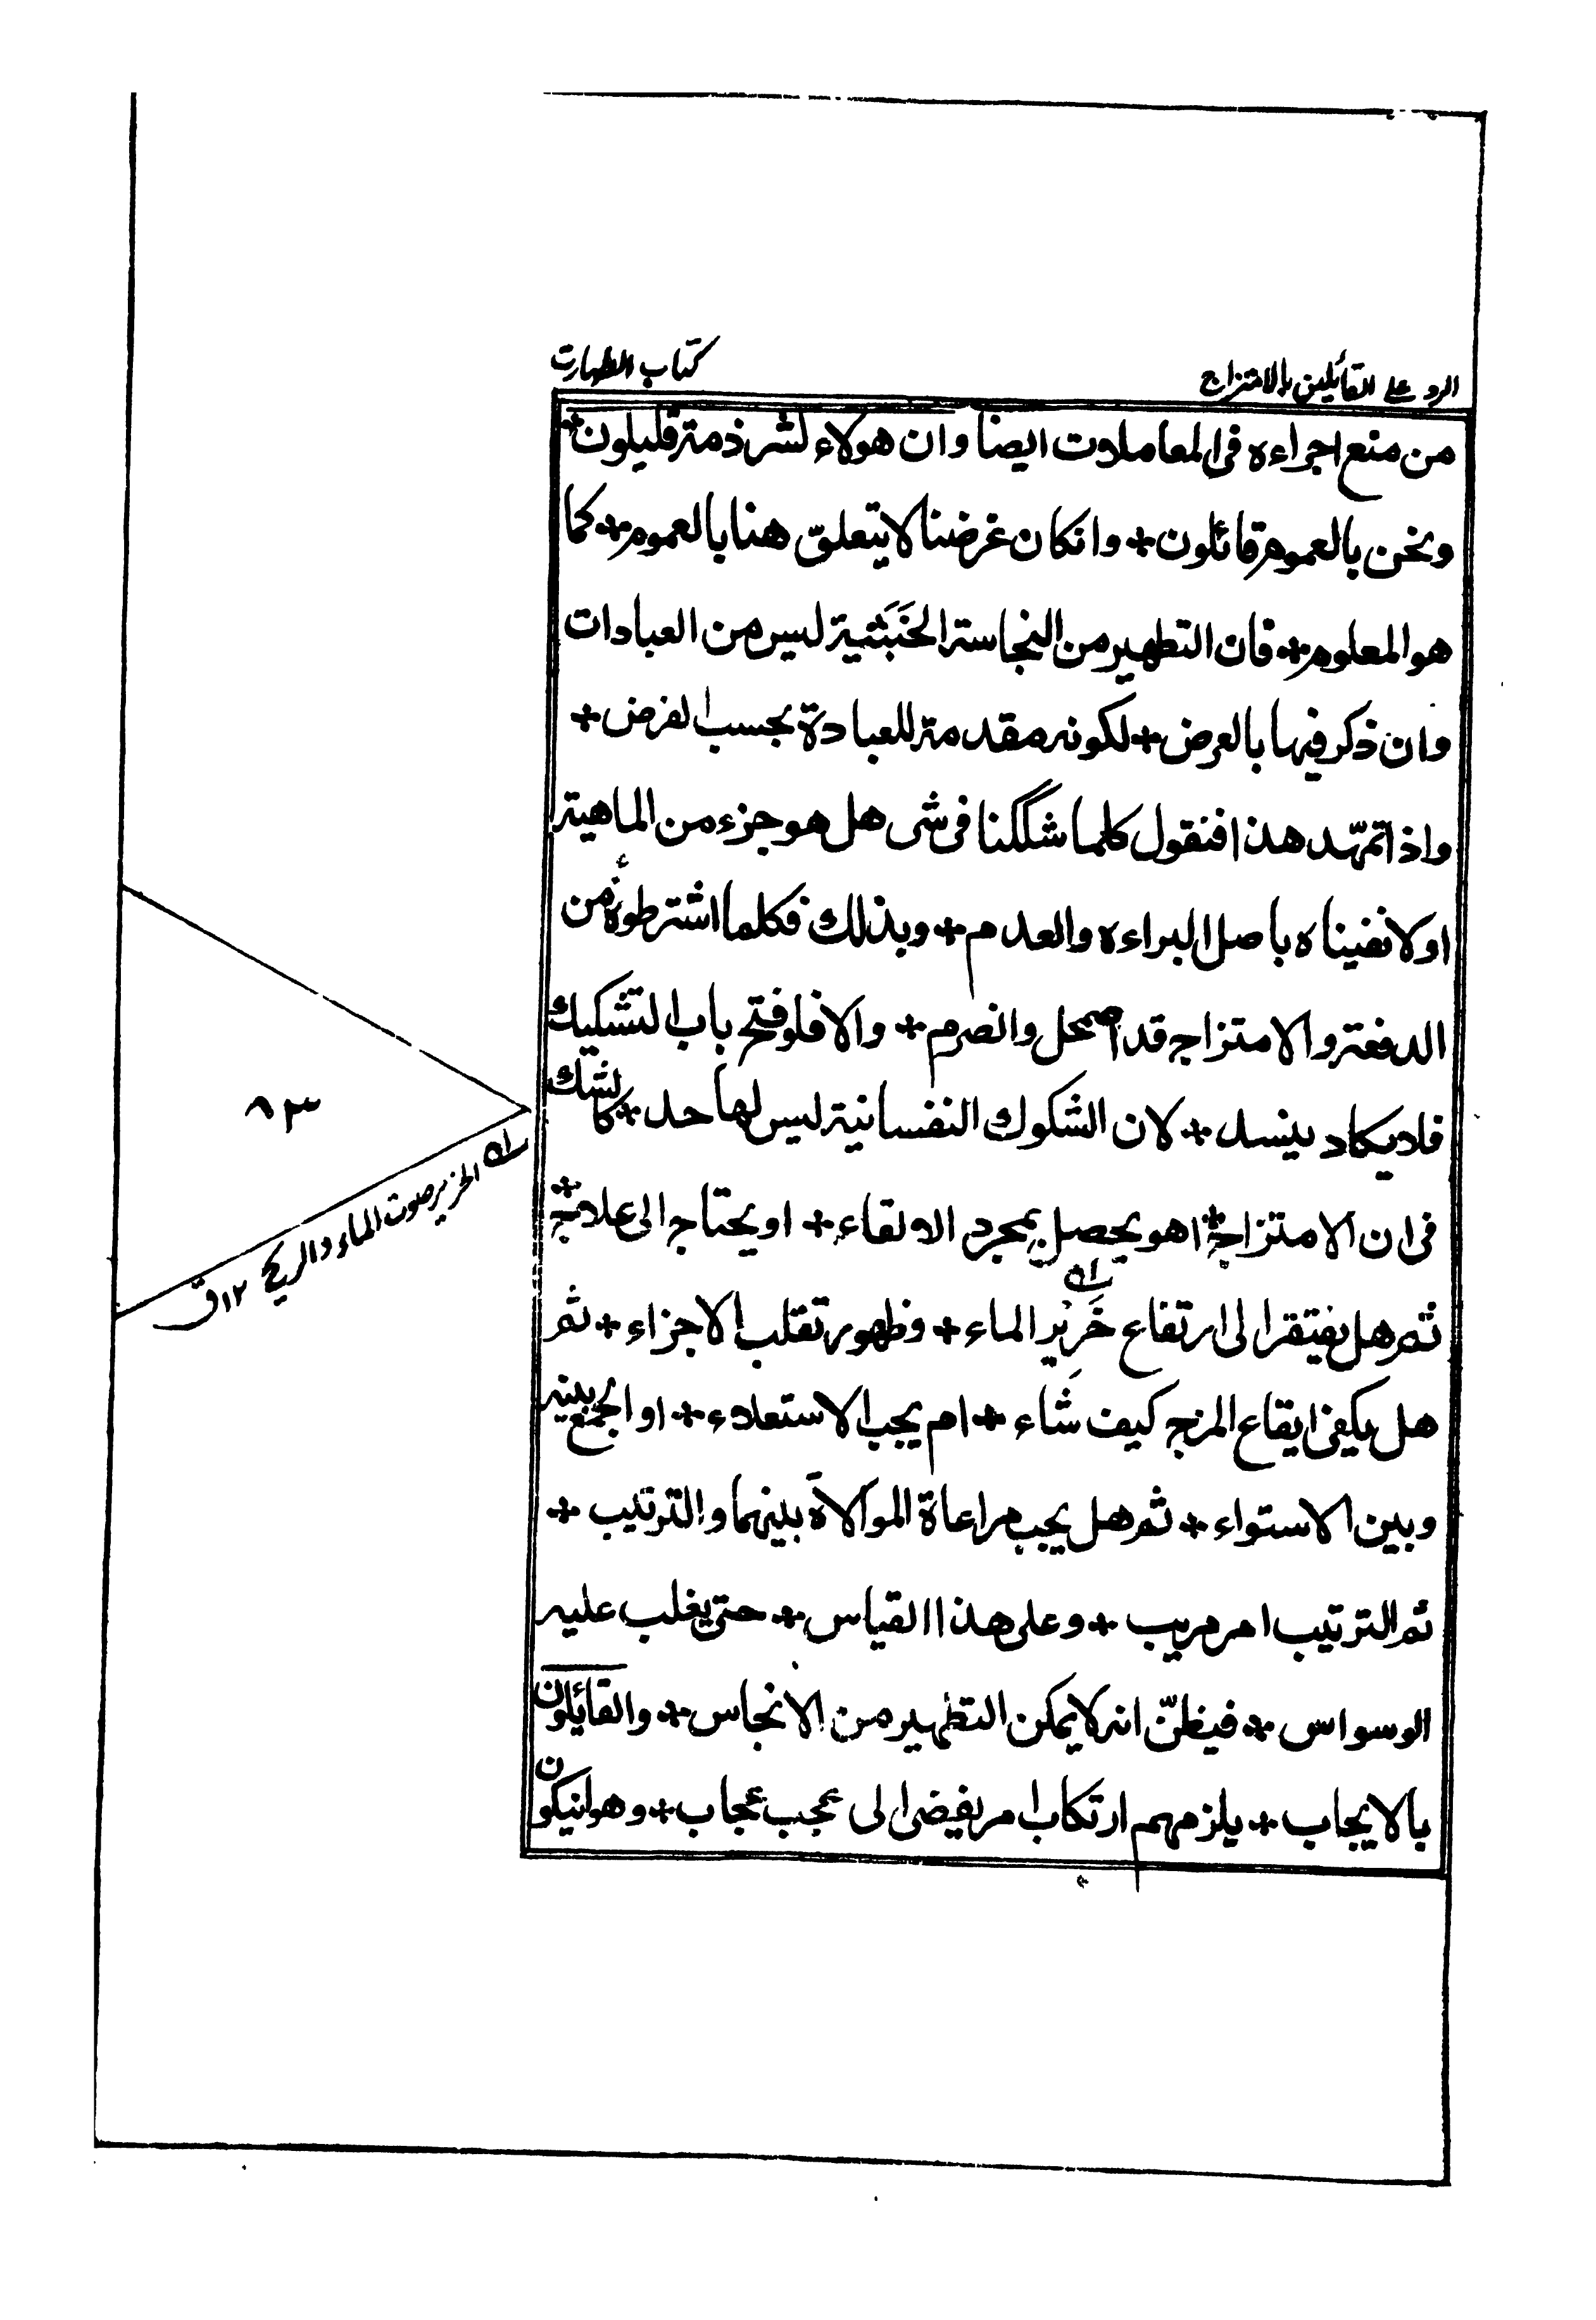 الرد على القائلين بالامتزاج
كتاب الطهارت
من منع اجراءه فى المعاملات ايضا وان هولاء لشرذمة قليلون *
ونحن بالعموم قائلون * وانكان غرضنا لا يتعلّق هنا بالعموم * كما
هو المعلوم * فان التطهير من النجاسة الخَبَثية ليس من العبادات
وان ذكر فيها بالعرض * لكونه مقدمة للعبادة بحسب الفرض *
واذا تمهّد هذا فنقول كلما شككنا فى شى هل هو جزء من الماهية
اولا نفيناه باصل البراءه والعدم * وبذلك فكلما اشترطوه من
الدفعة والامتزاج قد اضمحل وانصرم * والا فلو فتح باب التشكيك
فلا يكاد ينسد * لان الشكوك النفسانية ليس لها حد * كالشك
فى ان الامتزاج * اهو يحصل بمجرد الالقاء * او يحتاج الى علاج *
ثم هل يفتقر الى ارتفاع خَرِير الماء * وظهور تقلب الاجزاء * ثم
هل يكفى ايقاع المزج كيف شَاء * ام يجب الاستعلاء * او الجمع بينه
وبين الاستواء * ثم هل يجب مراعاة الموالاة بينهما والترتيب *
ثم الترتيب امر مريب * وعلى هذا القياس * حتى يغلب عليه
الوسواس * فيظنّ انه لا يمكن التطهير من الانجاس * والقائلون
بالايجاب * يلزمهم ارتكاب امر يفضى الى عجب عجاب * وهو انيكون
له الخرير صوت الماء والريح ١٢ ق